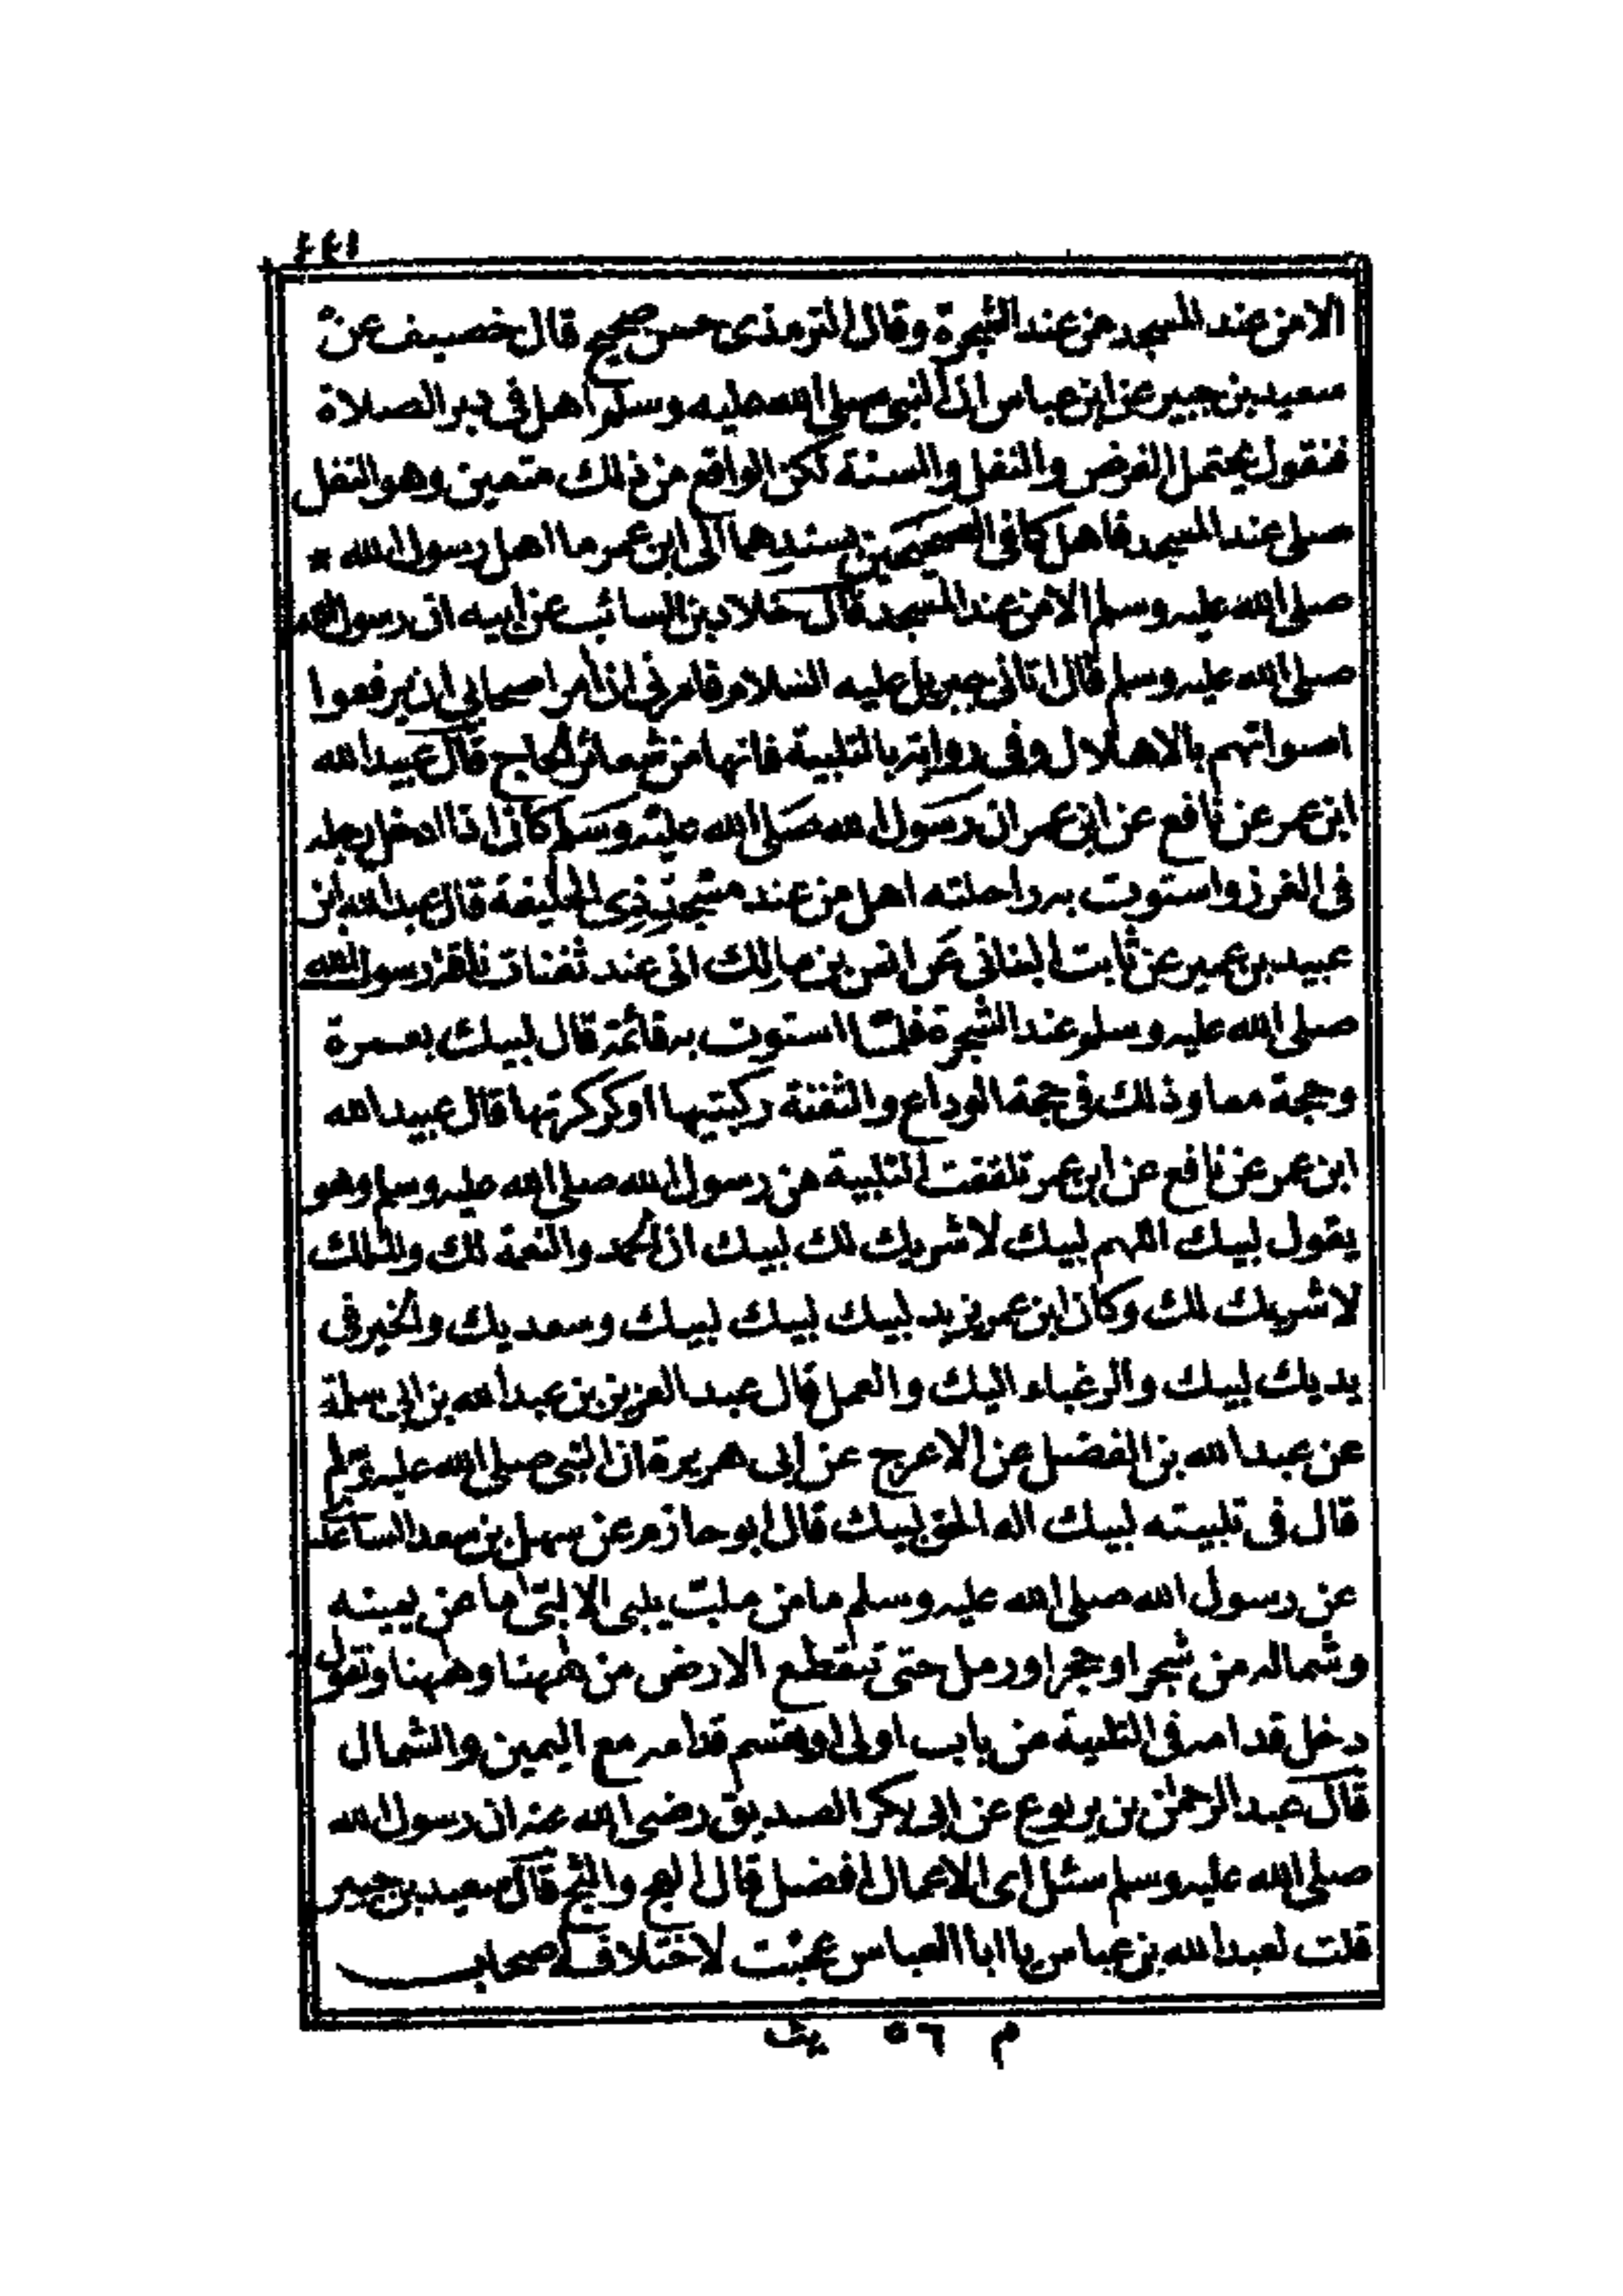 ٤٤١
الا من عند المسجد من عند الشجرة وقال الترمذى حسن صحيح قال خصيف عن
سعيد بن جبير عن ابن عباس ان النبى صلى الله عليه وسلم اهل فى دبر الصلاة
فنقول يحتمل الفرض والنفل والسنة لكن الواقع من ذلك متعين وهو النفل
صلى عند المسجد فاهل كما فى الصحيحين بسندهما الى ابن عمر ما اهل رسول الله *
صلى الله عليه وسلم الا من عند المسجد قال خلاد بن السائب عن ابيه ان رسول الله
صلى الله عليه وسلم قال اتانى جبريل عليه السلام فامرنى ان آمر اصحابى ان يرفعوا
اصواتهم بالاهلال وفى رواية بالتلبية فانها من شعائر الحاج قال عبيد الله
ابن عمر عن نافع عن ابن عمر ان رسول الله صلى الله عليه وسلم كان اذا ادخل رجله
فى الغرز واستوت به راحلته اهل من عند مسجد ذى الحليفة قال عبد الله بن
عبيد بن عمير عن ثابت البنانى عن انس بن مالك انى عند ثفنات ناقة رسول الله
صلى الله عليه وسلم عند الشجرة فلما استوت به قائمة قال لبيك بعمرة
وحجة معا وذلك فى حجة الوداع والثفنة ركبتيها او كركرتها قال عبيد الله
ابن عمر عن نافع عن ابن عمر تلقفت التلبية من رسول الله صلى الله عليه وسلم وهو
يقول لبيك اللهم لبيك لا شريك لك لبيك ان الحمد والنعمة لك والملك
لا شريك لك وكان ابن عمر يزيد لبيك لبيك لبيك وسعديك والخير فى
يديك لبيك والرغباء اليك والعمل قال عبد العزيز بن عبد الله بن ابى سلمة
عن عبد الله بن الفضل عن الاعرج عن ابى هريرة ان النبى صلى الله عليه وسلم
قال فى تلبيته لبيك اله الحق لبيك قال ابو حازم عن سهل بن سعد الساعدى
عن رسول الله صلى الله عليه وسلم ما من ملبّ يلبى الا لبّى ما عن يمينه
وشماله من شجر او حجر او رمل حتى تنقطع الارض من ههنا وههنا ونقول
دخل قدامه فى التلبية من باب اولى او هو قسم قدامه مع اليمين والشمال
قال عبد الرحمن بن يربوع عن ابى بكر الصديق رضى الله عنه ان رسول الله
صلى الله عليه وسلم سئل اى الاعمال افضل قال العج والثج قال سعيد بن جبير
قلت لعبد الله بن عباس يا ابا العباس عجبت لاختلاف اصحاب
م ٥٦ يث